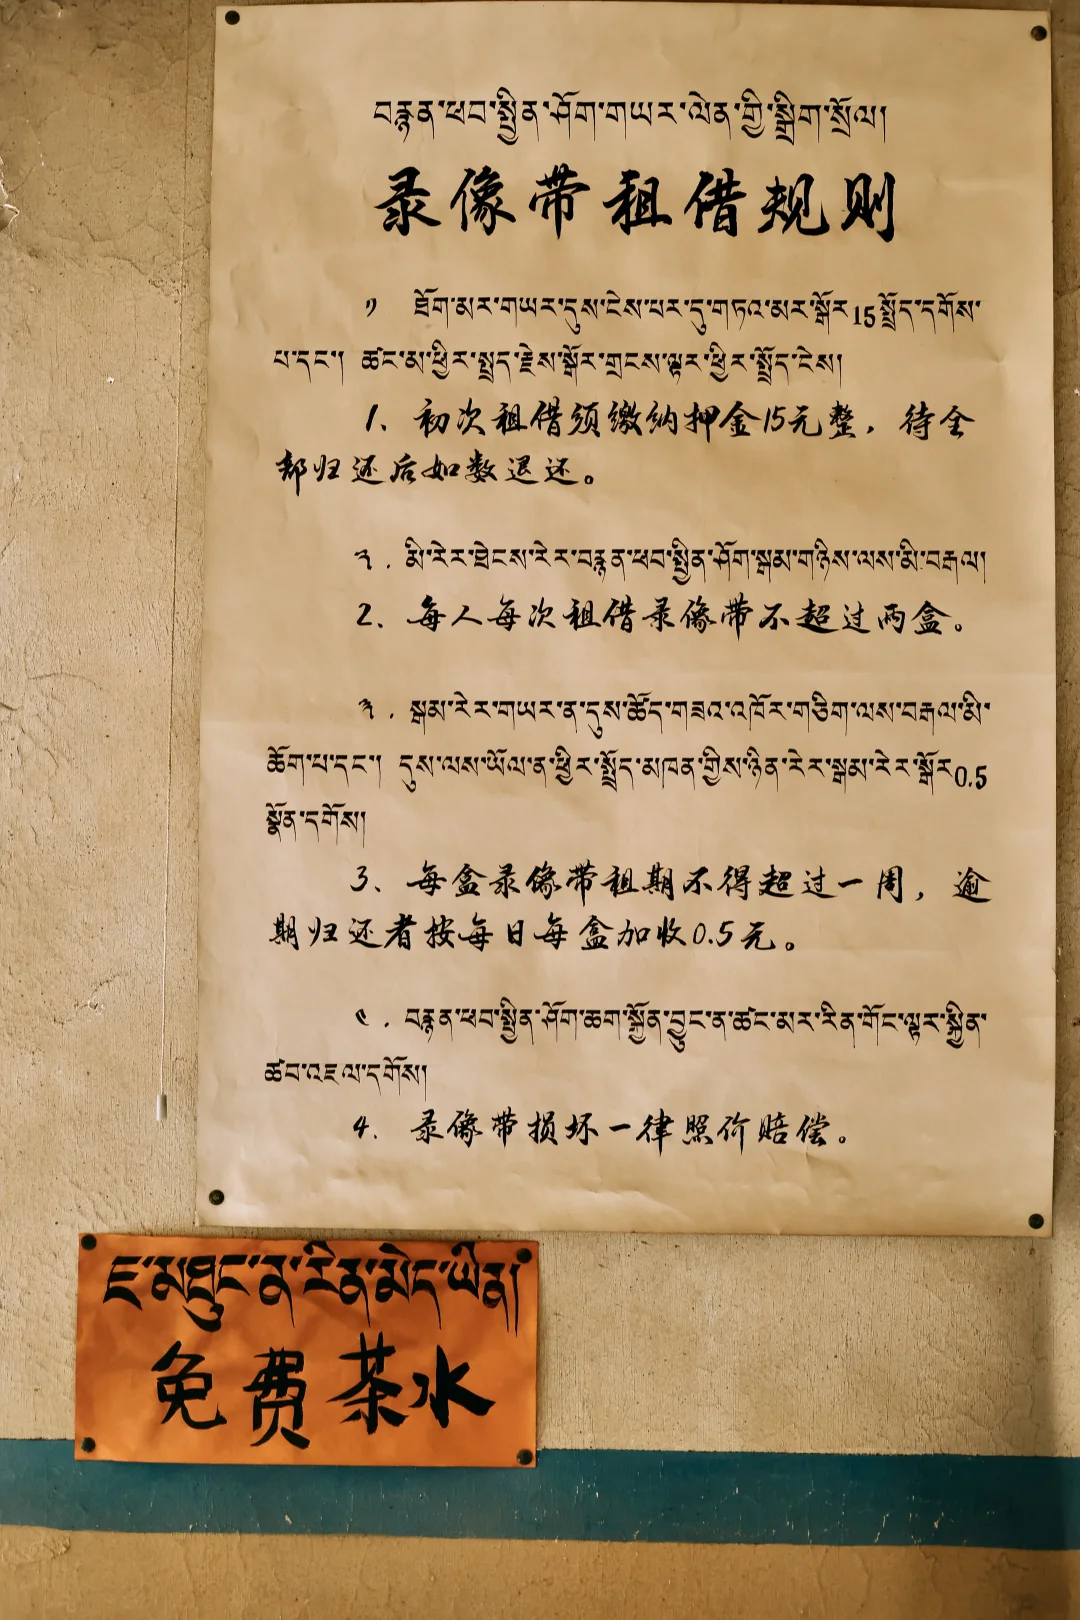 བརྙན་ཕབ་སྤྲིན་ཤོག་གཡར་ལེན་གྱི་སྒྲིག་སྲོལ།
录像带租借规则
༡ ཐོག་མར་གཡར་དུས་ངེས་པར་དུ་གཏའ་མར་སྒོར15སྤྲོད་དགོས་
པ་དང་། ཚང་མ་ཕྱིར་སྤྲད་རྗེས་སྒོར་གྲངས་ལྟར་ཕྱིར་སྤྲོད་ངེས།
1、初次租借须缴纳押金15元整，待全
部归还后如数退还。
༢ . མི་རེར་ཐེངས་རེར་བརྙན་ཕབ་སྤྲིན་ཤོག་སྒམ་གཉིས་ལས་མི་བརྒལ།
2、每人每次租借录像带不超过两盒。
༣ . སྒམ་རེར་གཡར་ན་དུས་ཚོད་གཟའ་འཁོར་གཅིག་ལས་བརྒལ་མི་
ཆོག་པ་དང་། དུས་ལས་ཡོལ་ན་ཕྱིར་སྤྲོད་མཁན་གྱིས་ཉིན་རེར་སྒམ་རེར་སྒོར0.5
སྣོན་དགོས།
3、每盒录像带租期不得超过一周，逾
期归还者按每日每盒加收0.5元。
༤ . བརྙན་ཕབ་སྤྲིན་ཤོག་ཆག་སྐྱོན་བྱུང་ན་ཚང་མར་རིན་གོང་ལྟར་སྐྱིན་
ཚབ་འཇལ་དགོས།
4. 录像带损坏一律照价赔偿。
ཇ་མཐུང་ན་རིན་མེད་ཡིན།
免费茶水